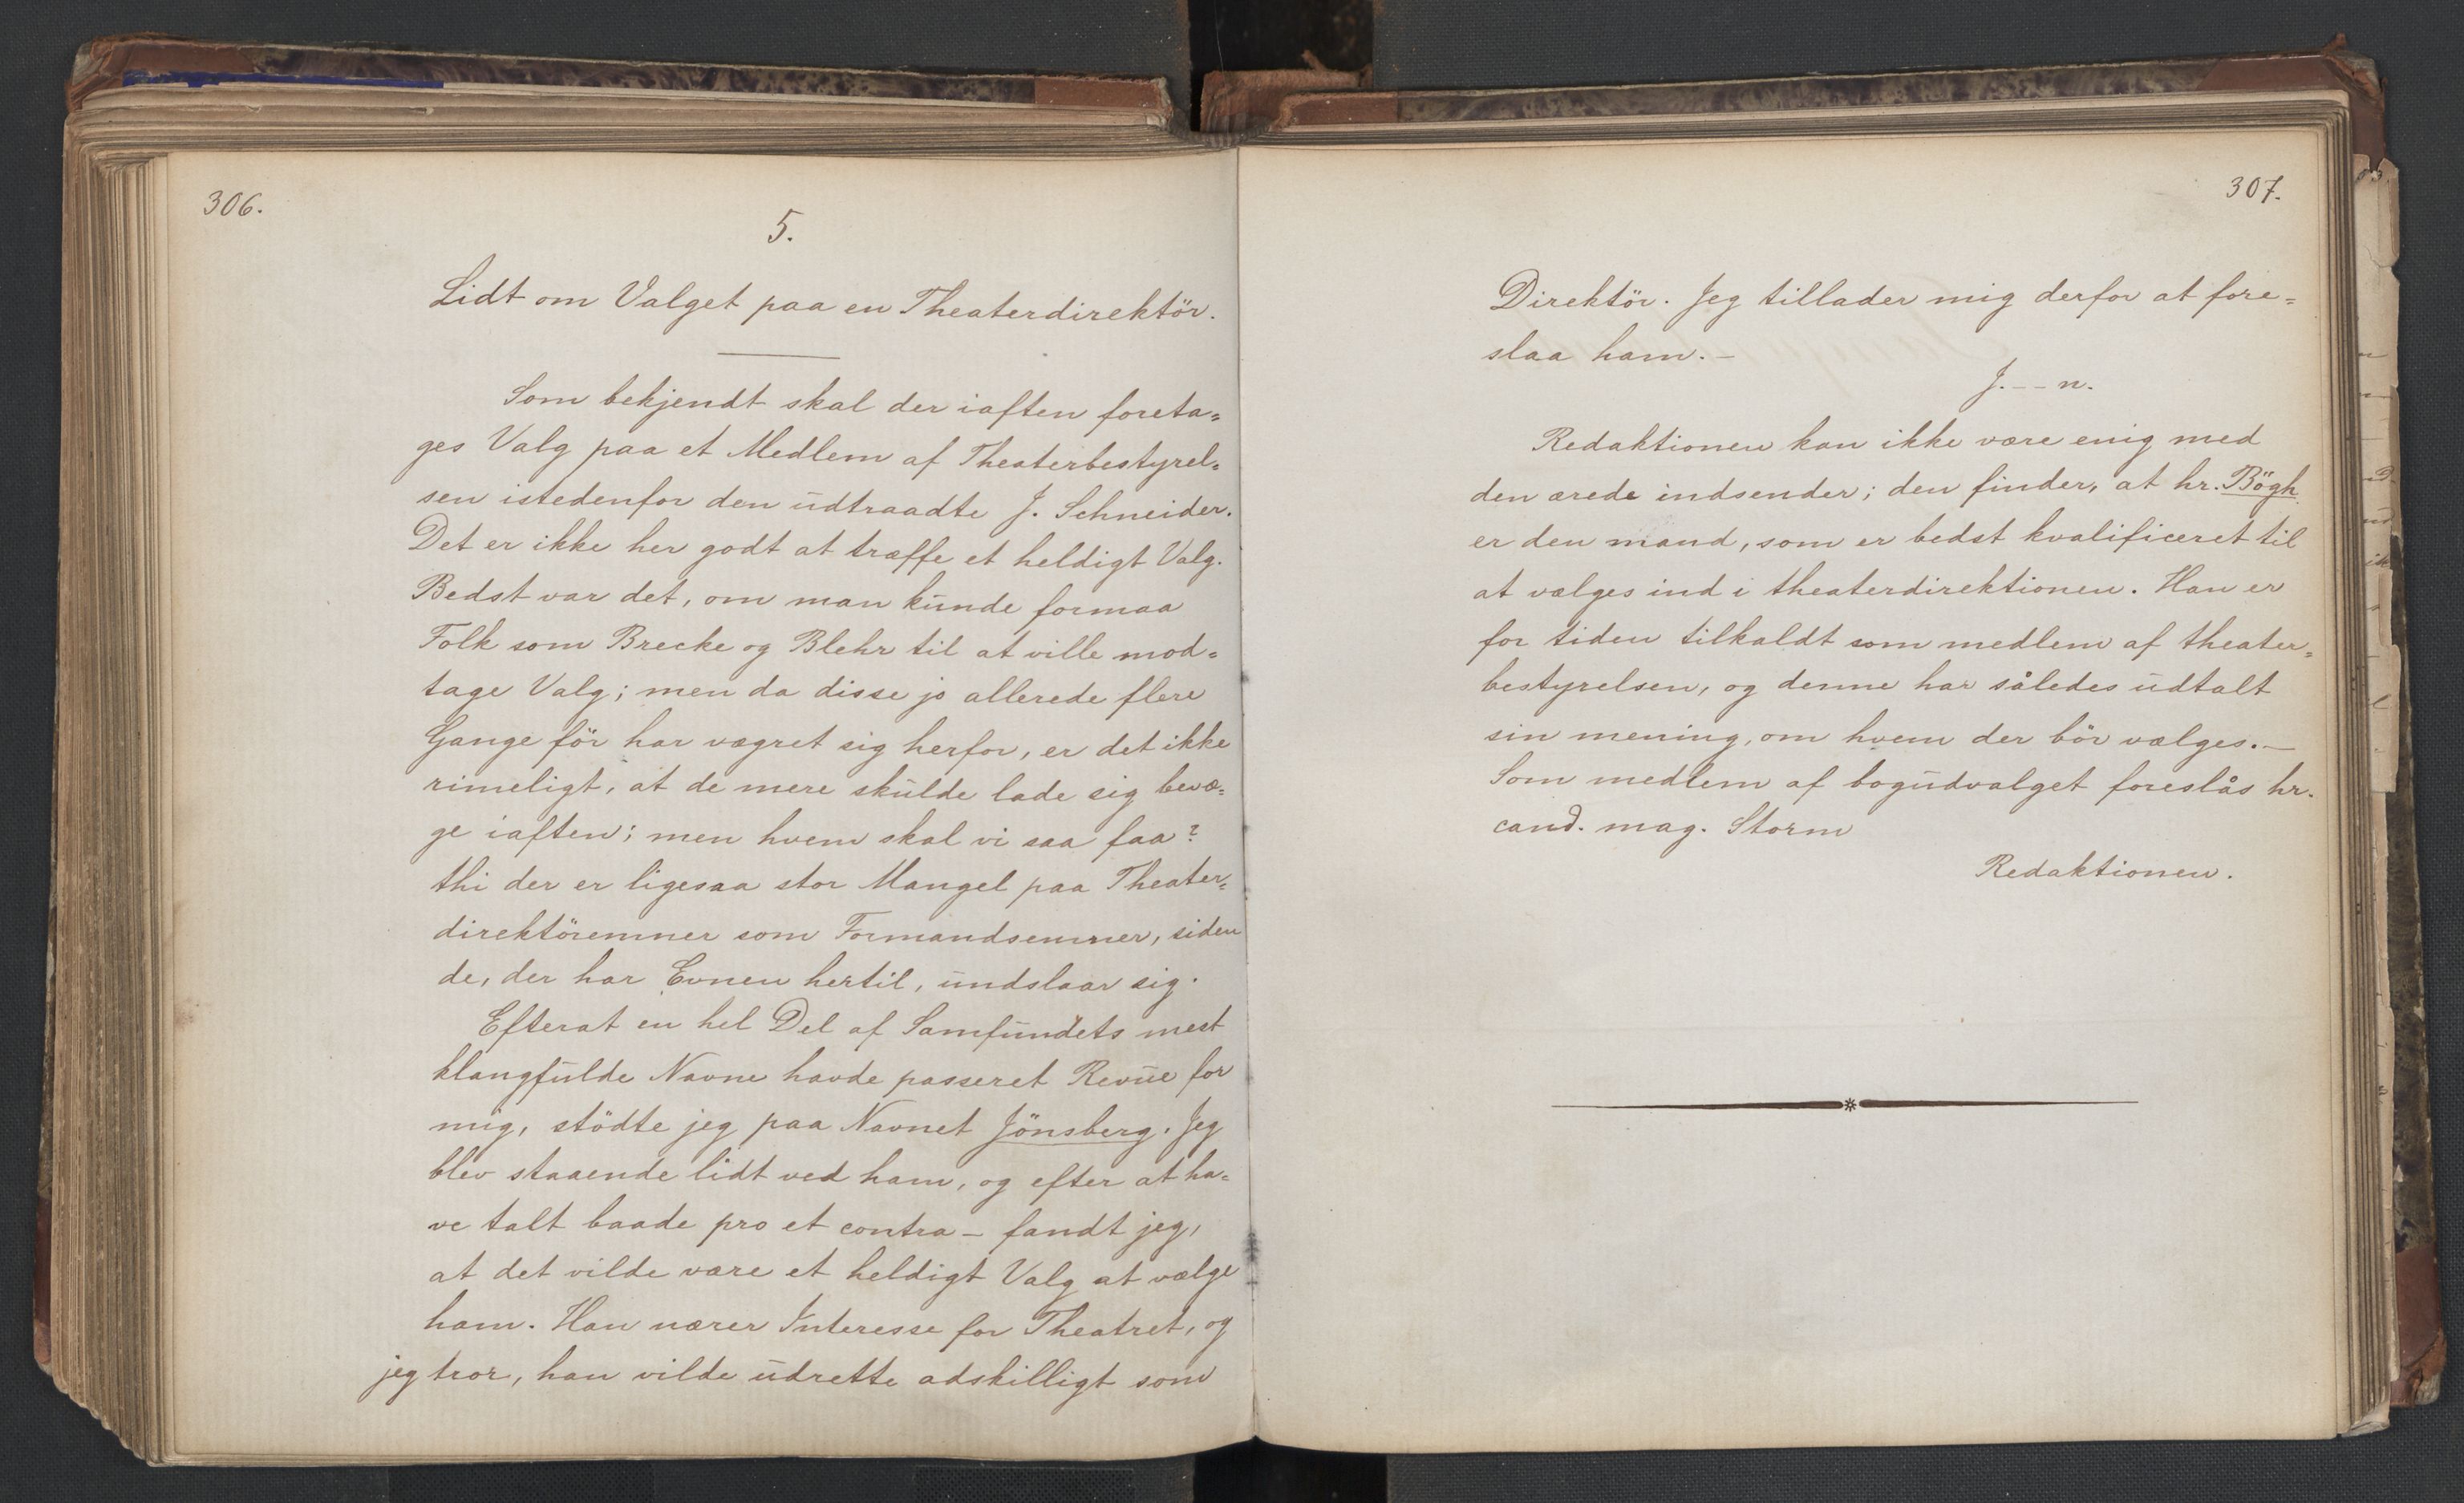 306.
5.
Lidt om Valget paa en Theaterdirektör.
Som bekjendt skal der iaften foreta=
ges Valg paa et Medlem af Theaterbestyrel=
sen istedenfor den udtraadte J. Schneider.
Det er ikke her godt at træffe et heldigt Valg.
Bedst var det, om man kunde formaa
Folk som Brecke og Blehr til at ville mod=
tage Valg; men da disse jo allerede flere
Gange för har vægret sig herfor, er det ikke
rimeligt, at de mere skulde lade sig bevæ=
ge iaften; men hvem skal vi saa faa?
thi der er ligesaa stor Mangel paa Theater=
direktöremner som Formandsemner, siden
de, der har Evnen hertil, undslaar sig.
Efterat en hel Del af Samfundets mest
klangfulde Navne havde passeret Revue for
mig, stödte jeg paa Navnet Jönsberg. Jeg
blev staaende lidt ved ham, og efter at ha=
ve talt baade pro et contra – fandt jeg,
at det vilde være et heldigt Valg at vælge
ham. Han nærer Interesse for Theatret, og
jeg tror, han vilde udrette adskilligt som
307.
Direktör. Jeg tillader mig derfor at fore=
slaa ham. –
J. -- n.
Redaktionen kan ikke være enig med
den ærede indsender; den finder, at hr. Bögh
er den mand, som er bedst kvalificeret til
at vælges ind i theaterdirektionen. Han er
for tiden tilkaldt som medlem af theater=
bestyrelsen, og denne har således udtalt
sin mening, om hvem der bör vælges. –
Som medlem af bogudvalget foreslås hr.
cand. mag. Storm
Redaktionen.